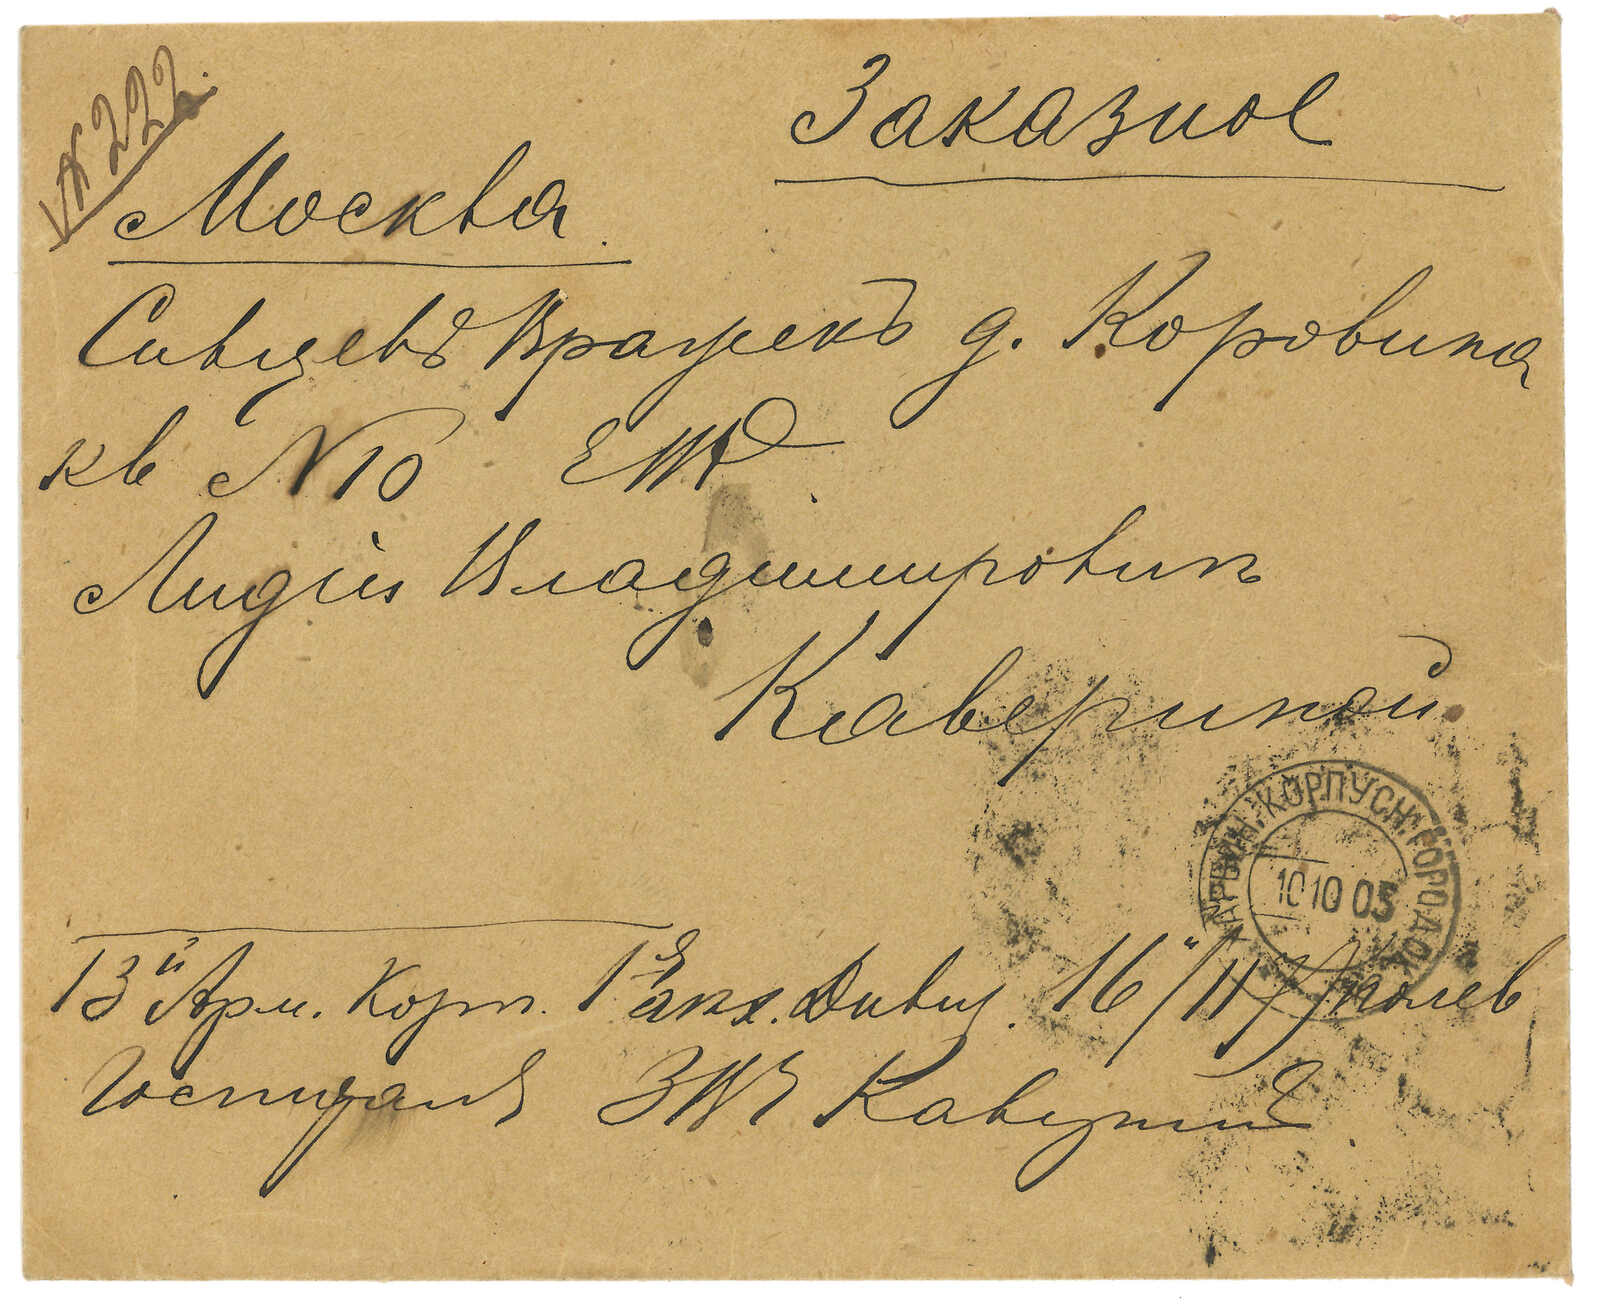 № 222.
Заказное
Москва.
Сивцевъ Вражекъ д. Коровина
кв N 10 ЕВ
Лидіи Владимировнѣ
Кавериной
КОРПУСН. ГОРОДСК.
10 10 05
13й Арм. Корп. 1й Дивиз. 16/II Полев
Госпиталь